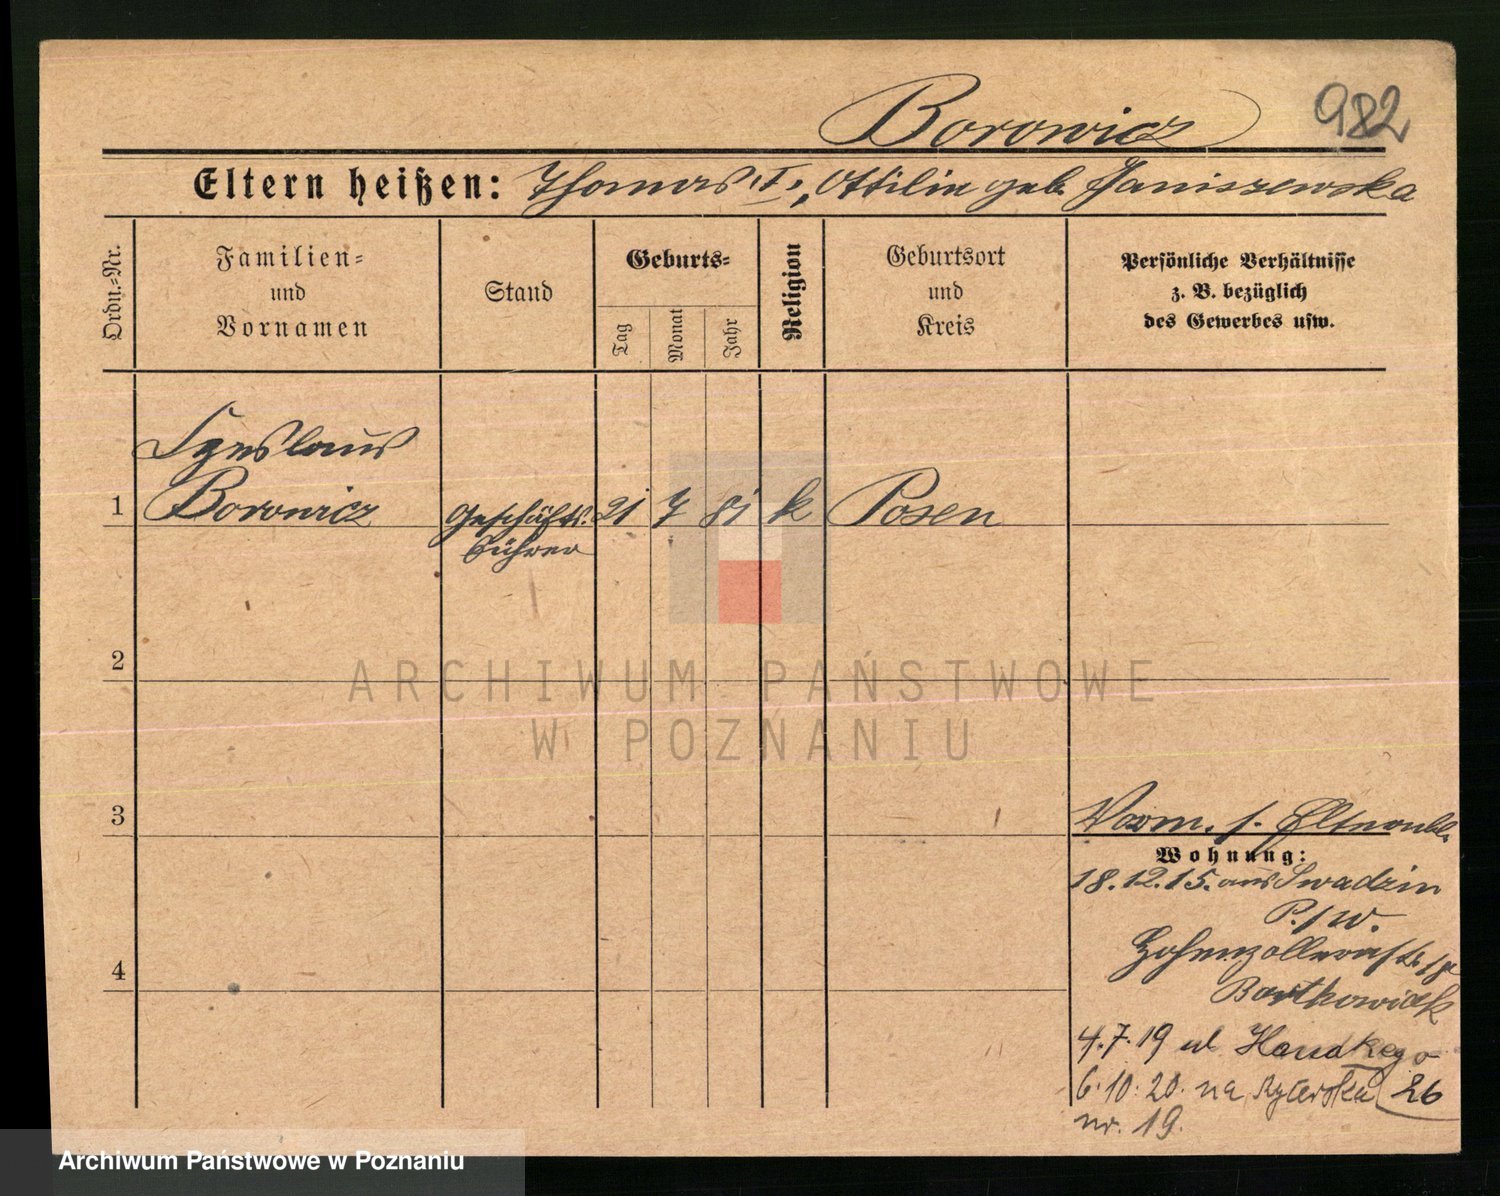 Borowicz
982
Eltern heißen: Thomas "I", Ottilie geb. Janiszewska
Ordn.-Nr.
Familien-
und
Vornamen
Stand
Geburts-
Tag
Monat
Jahr
Religion
Geburtsort
und
Kreis
Persönliche Verhältnisse
z. B. bezüglich
des Gewerbes usw.
Czeslaus
1 Borowicz Geschäfts- 21 7 81 k Posen
führer
2
3
Vorm. s. Elternbl.
Wohnung:
18.12.15. aus Swadzin
P./W.
4
Hohenzollernstr.
Bartkowiak
4.7.19 ul
6.10.20. na Rycerska 26
nr. 19.
ARCHIWUM PAŃSTWOWE
W POZNANIU
Archiwum Państwowe w Poznaniu